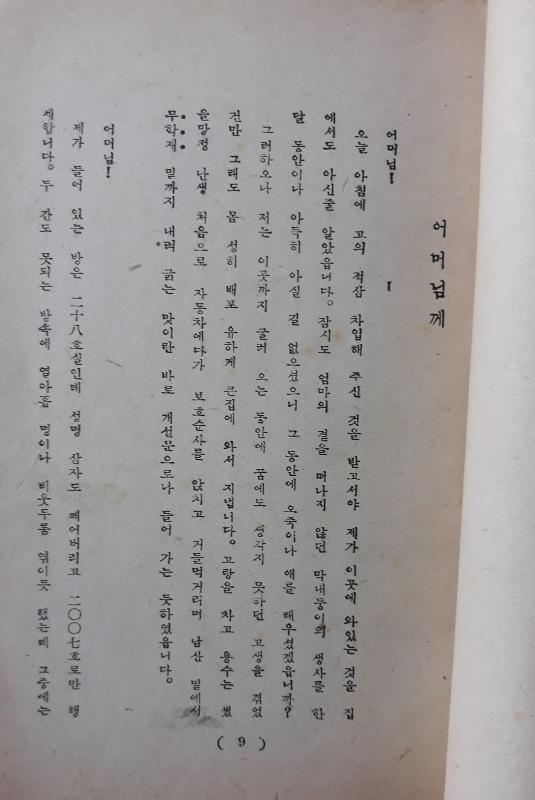 어머님께
어머님!
오늘 아침에 고의 적삼 차입해 주신 것을 받고서야 제가 이곳에 와있는 것을 집
에서도 아신줄 알았읍니다. 잠시도 엄마의 곁을 떠나지 않던 막내둥이의 생사를 한
달 동안이나 아득히 아실 길 없으셨으니 그 동안에 오죽이나 애를 태우셨겠읍니까?
그러하오나 저는 이곳까지 굴러 오는 동안에 꿈에도 생각지 못하던 고생을 겪었
건만 그래도 몸 성히 배포 유하게 큰집에 와서 지냅니다. 고랑을 차고 용수는 썼
을망정 난생 처음으로 자동차에다가 보호순사를 앉히고 거들먹거리며 남산 밑에서
무학재 밑까지 내려 긁는 맛이란 바로 개선문으로나 들어 가는 듯하였읍니다.
어머님!
제가 들어 있는 방은 二十八호실인데 성명 삼자도 떼어버리고 二〇〇七호로만 행
세합니다. 두 간도 못되는 방속에 열아홉 명이나 비웃두룸 엮이듯 했는데 그중에는
( 9 )